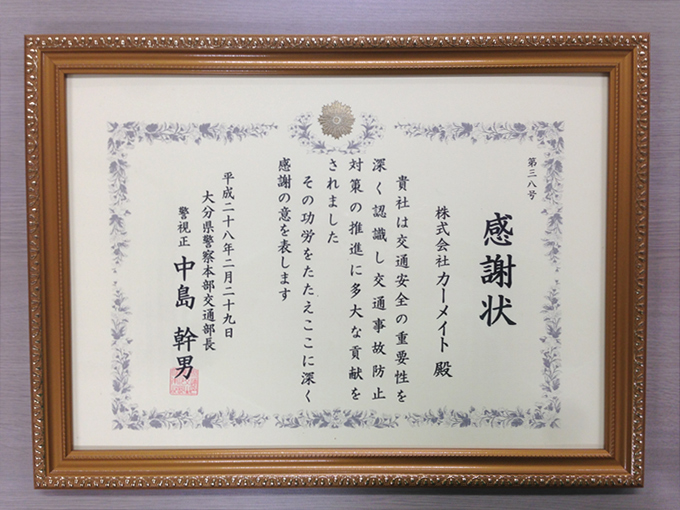 第三八号
感謝状
株式会社カーメイト 殿
貴社は交通安全の重要性を
深く認識し交通事故防止
対策の推進に多大な貢献を
されました
その功労をたたえここに深く
感謝の意を表します
平成二十八年二月二十九日
大分県警察本部交通部長
警視正 中島 幹男